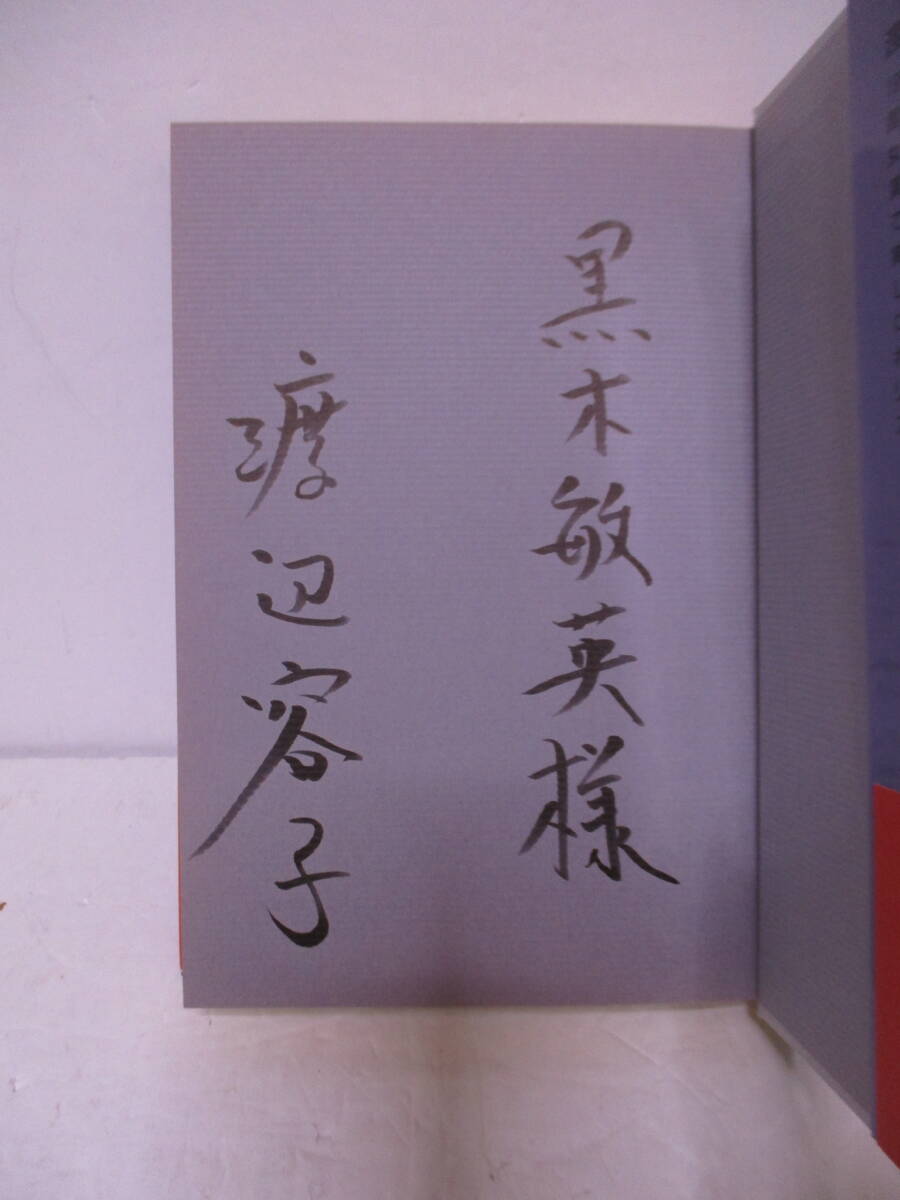 黒木敏英様
渡辺容子